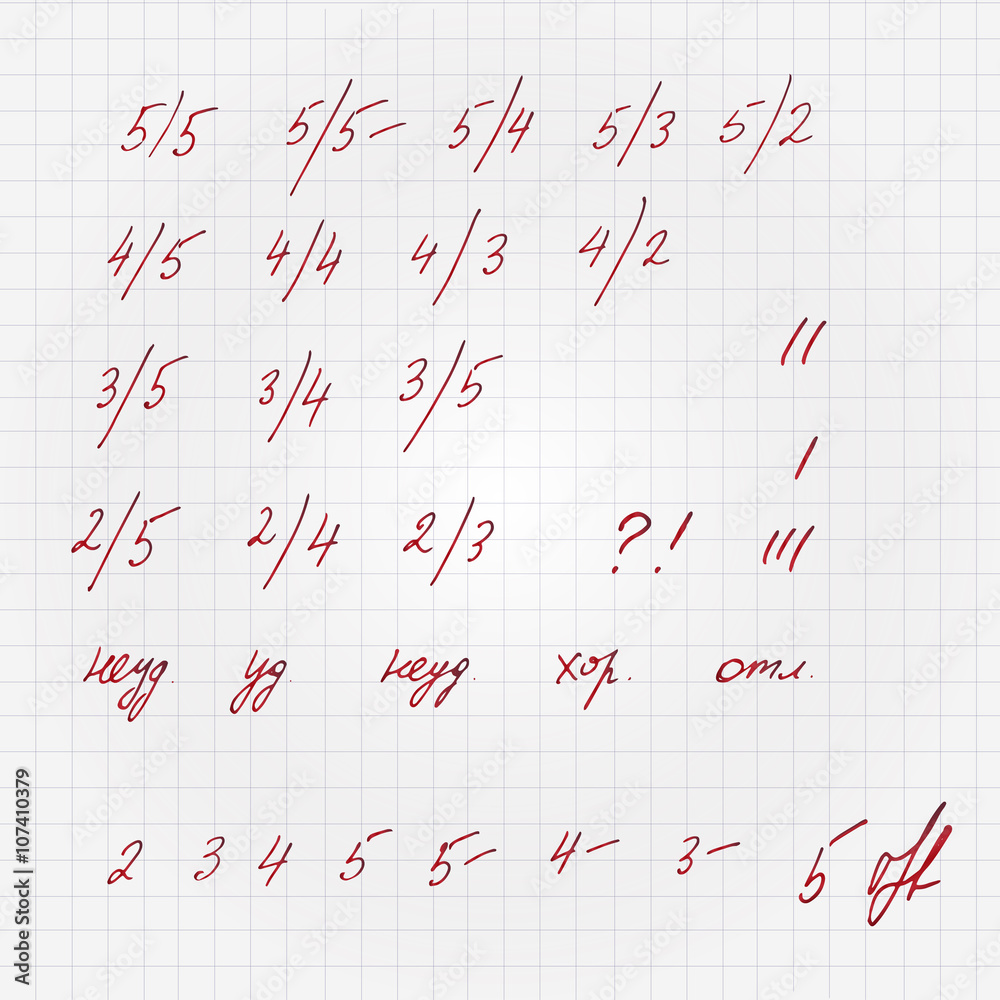 5/5 5/5– 5/4 5/3 5/2
4/5 4/4 4/3 4/2
//
3/5 3/4 3/5
/
2/5 2/4 2/3 ?! ///
неуд. уд. неуд. хор. отл.
2 3 4 5 5– 4– 3– 5
Adobe Stock | #107410379